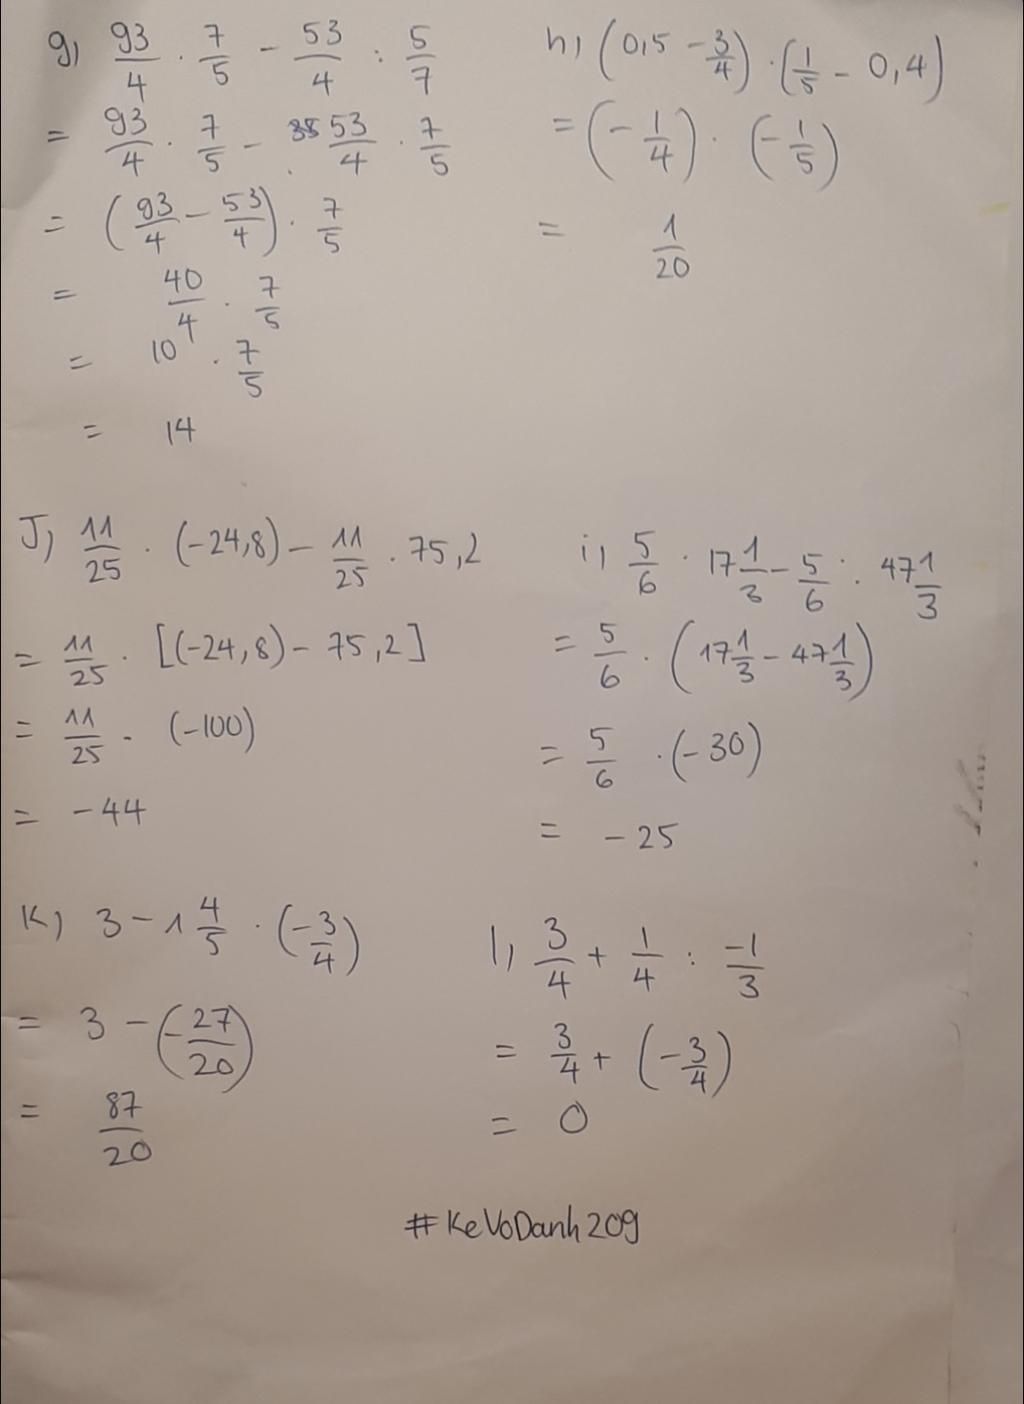 g) 93/4 · 7/5 - 53/4 : 5/7
= 93/4 · 7/5 - 53/4 · 7/5
= (93/4 - 53/4) · 7/5
= 40/4 · 7/5
= 10 · 7/5
= 14
h) (0,5 - 3/4) · (1/5 - 0,4)
= (-1/4) · (-1/5)
= 1/20
J) 11/25 · (-24,8) - 11/25 · 75,2
= 11/25 · [(-24,8) - 75,2]
= 11/25 · (-100)
= -44
i) 5/6 · 17 1/3 - 5/6 · 47 1/3
= 5/6 · (17 1/3 - 47 1/3)
= 5/6 · (-30)
= -25
K) 3 - 1 4/5 · (-3/4)
= 3 - (-27/20)
= 87/20
l) 3/4 + 1/4 : -1/3
= 3/4 + (-3/4)
= 0
#KeVoDanh209